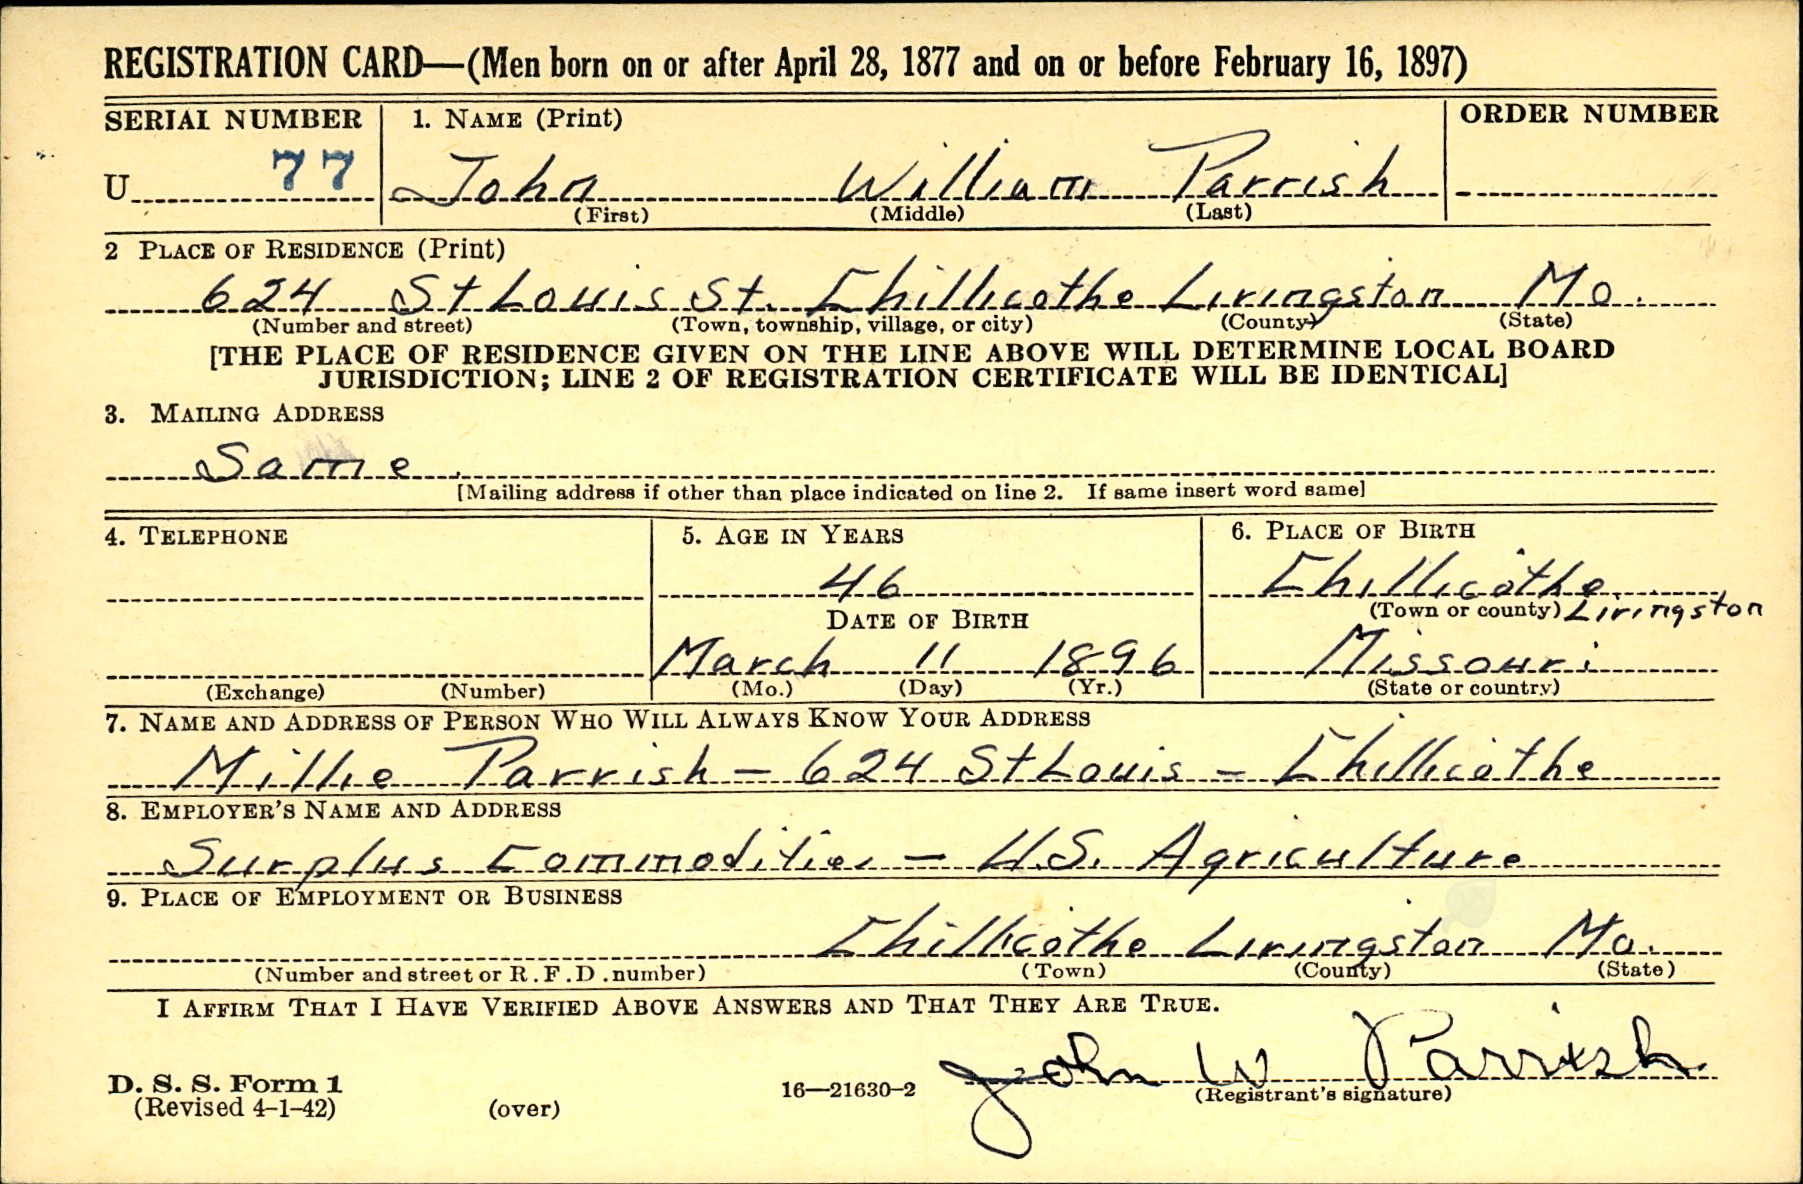 REGISTRATION CARD—(Men born on or after April 28, 1877 and on or before February 16, 1897)
SERIAL NUMBER 1. NAME (Print) ORDER NUMBER
U 77 John William Parrish
(First) (Middle) (Last)
2 PLACE OF RESIDENCE (Print)
624 St Louis St. Chillicothe Livingston Mo.
(Number and street) (Town, township, village, or city) (County) (State)
[THE PLACE OF RESIDENCE GIVEN ON THE LINE ABOVE WILL DETERMINE LOCAL BOARD
JURISDICTION; LINE 2 OF REGISTRATION CERTIFICATE WILL BE IDENTICAL]
3. MAILING ADDRESS
Same.
[Mailing address if other than place indicated on line 2. If same insert word same]
4. TELEPHONE 5. AGE IN YEARS 6. PLACE OF BIRTH
46 Chillicothe
DATE OF BIRTH (Town or county) Livingston
March 11 1896 Missouri
(Exchange) (Number) (Mo.) (Day) (Yr.) (State or country)
7. NAME AND ADDRESS OF PERSON WHO WILL ALWAYS KNOW YOUR ADDRESS
Millie Parrish - 624 St Louis - Chillicothe
8. EMPLOYER'S NAME AND ADDRESS
Surplus Commodities - U.S. Agriculture
9. PLACE OF EMPLOYMENT OR BUSINESS
Chillicothe Livingston Mo.
(Number and street or R.F.D. number) (Town) (County) (State)
I AFFIRM THAT I HAVE VERIFIED ABOVE ANSWERS AND THAT THEY ARE TRUE.
John W Parrish
D. S. S. Form 1 16—21630-2 (Registrant's signature)
(Revised 4-1-42) (over)